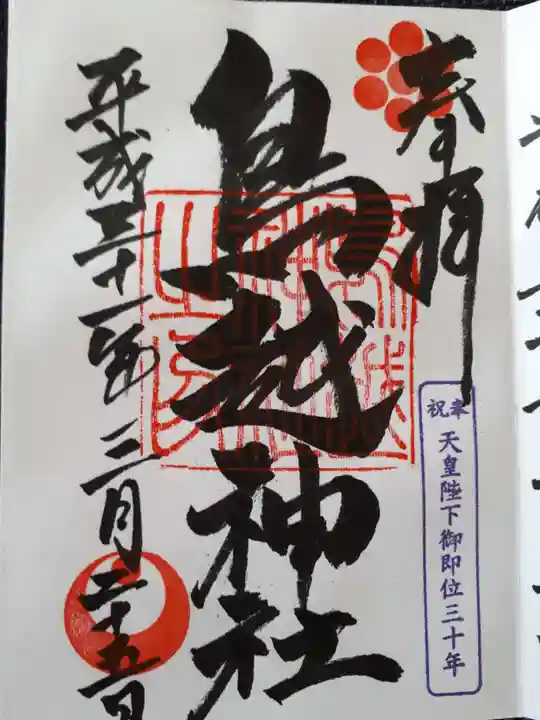 奉拝
奉祝 天皇陛下御即位三十年
鳥越神社
平成三十一年三月二十五日